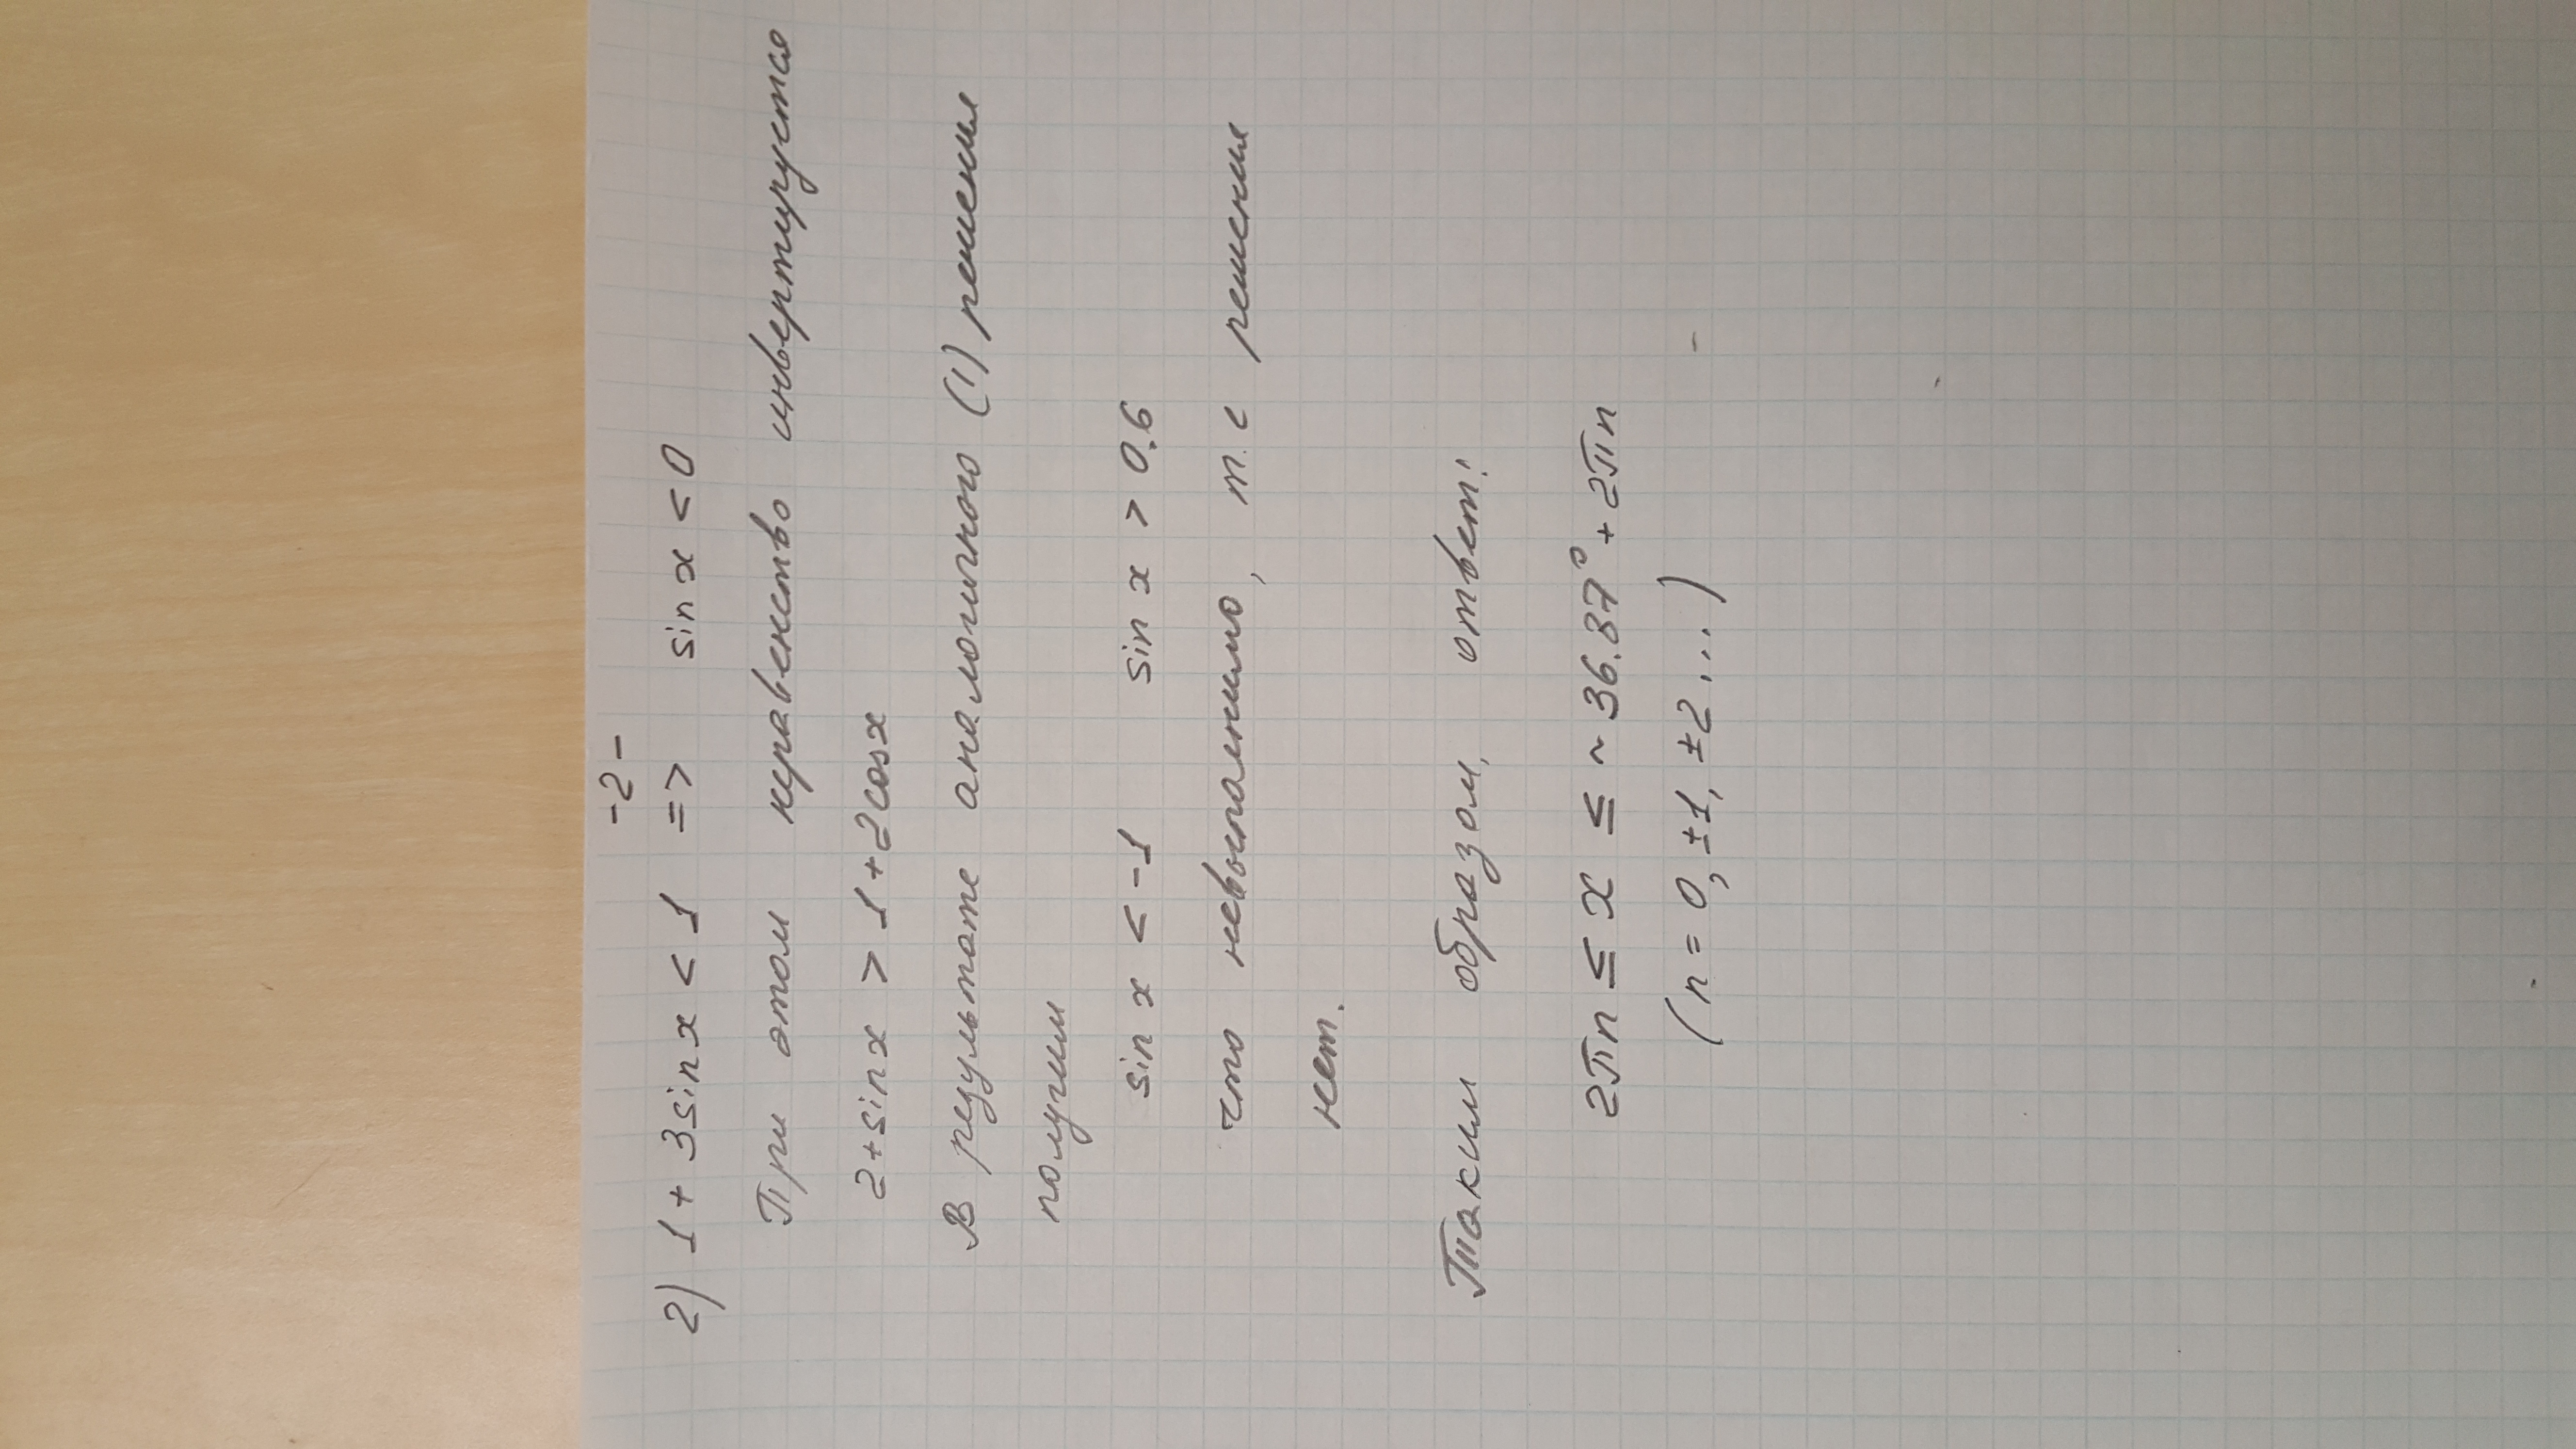 -2-
2) 1 + 3sinx < 1 => sin x < 0
При этом неравенство инвертируется
2+sinx > 1+2cosx
В результате аналогичного (1) решения
получим
sin x < -1 sin x > 0.6
что невыполнимо, т.е решения
нет.
Таким образом, ответ:
2πn ≤ x ≤ ~36.87° + 2πn
(n = 0, ±1, ±2....)